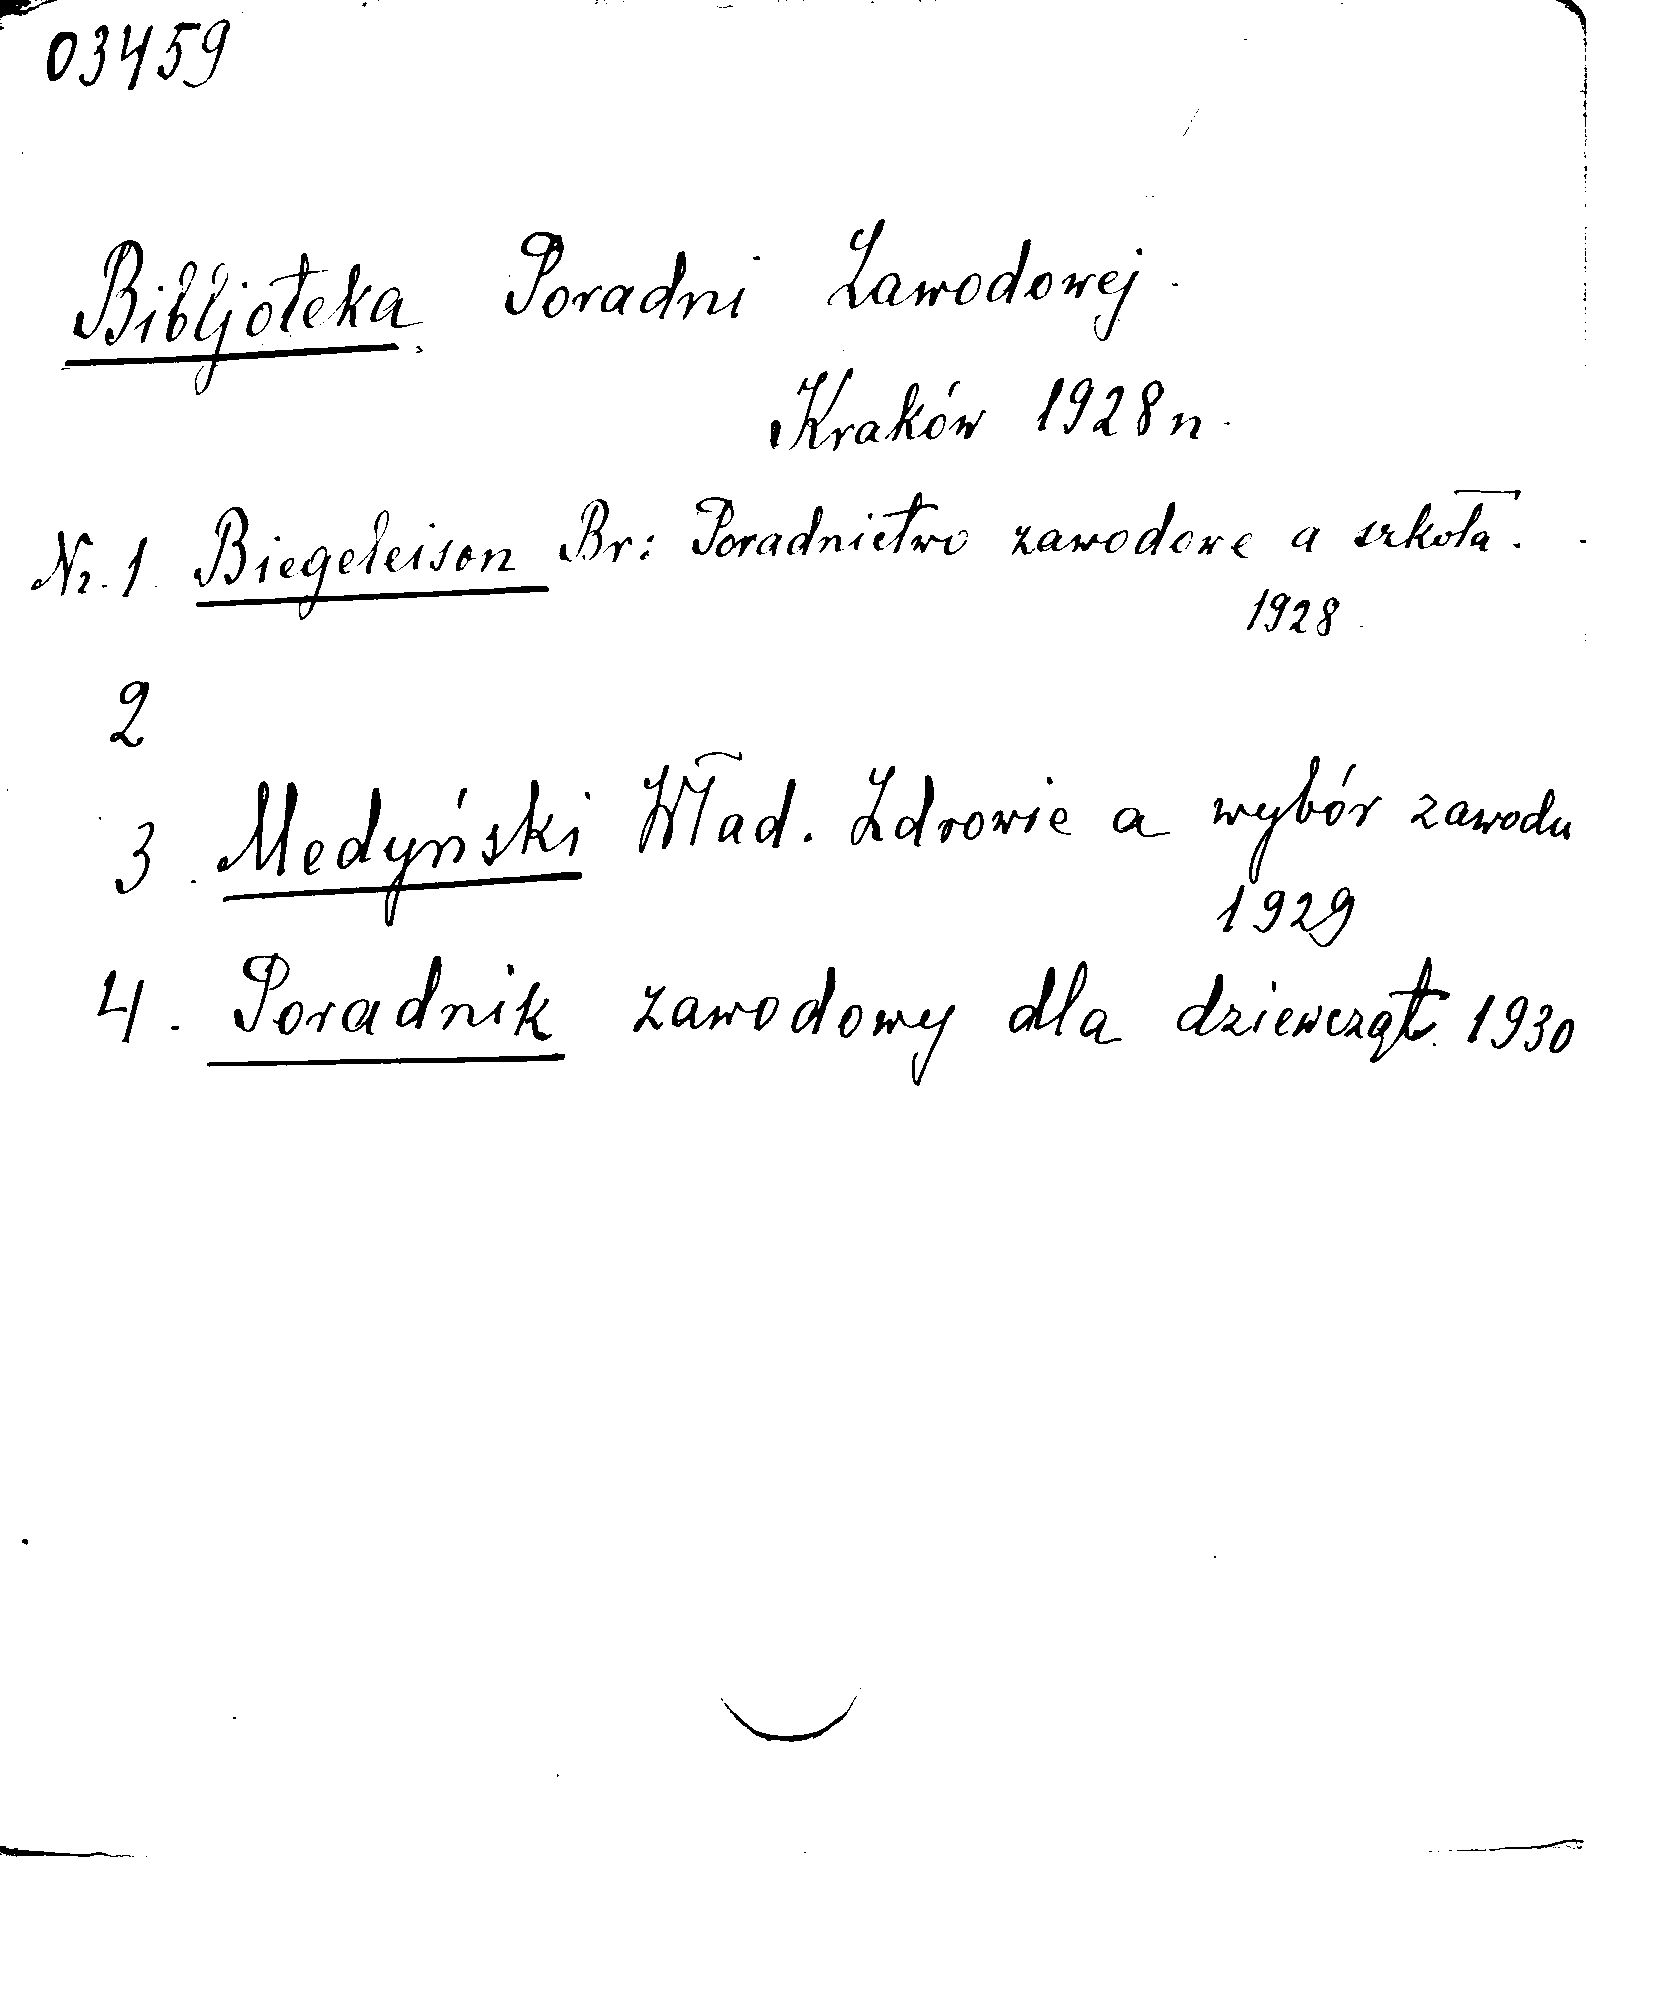 03459
Bibljoteka Poradni Zawodowej.
Kraków 1928 n.
Nr. 1 Biegeleisen Br: Poradnictwo zawodowe a szkoła.
1928
2
3. Medyński Wład. Zdrowie a wybór zawodu
1929
4. Poradnik zawodowy dla dziewcząt. 1930